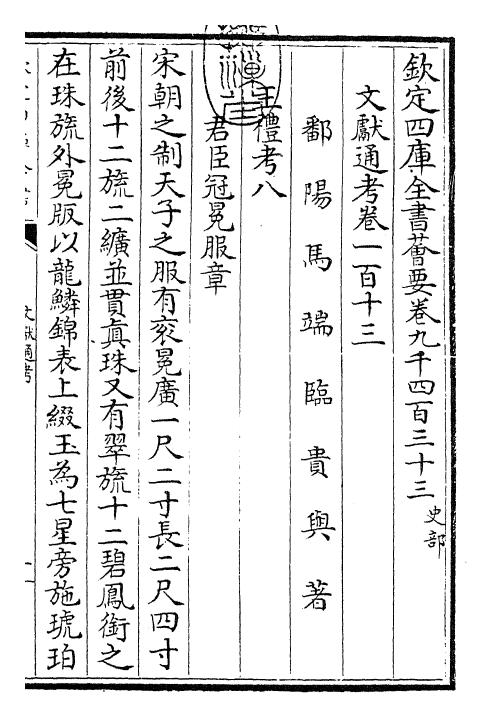 欽定四庫全書薈要卷九千四百三十三 史部
文獻通考卷一百十三
鄱陽馬端臨貴與著
王禮考八
君臣冠冕服章
宋朝之制天子之服有衮冕廣一尺二寸長二尺四寸
前後十二旒二纊並貫真珠又有翠旒十二碧鳳銜之
在珠旒外冕版以龍鱗錦表上綴玉為七星旁施琥珀
文獻通考
一